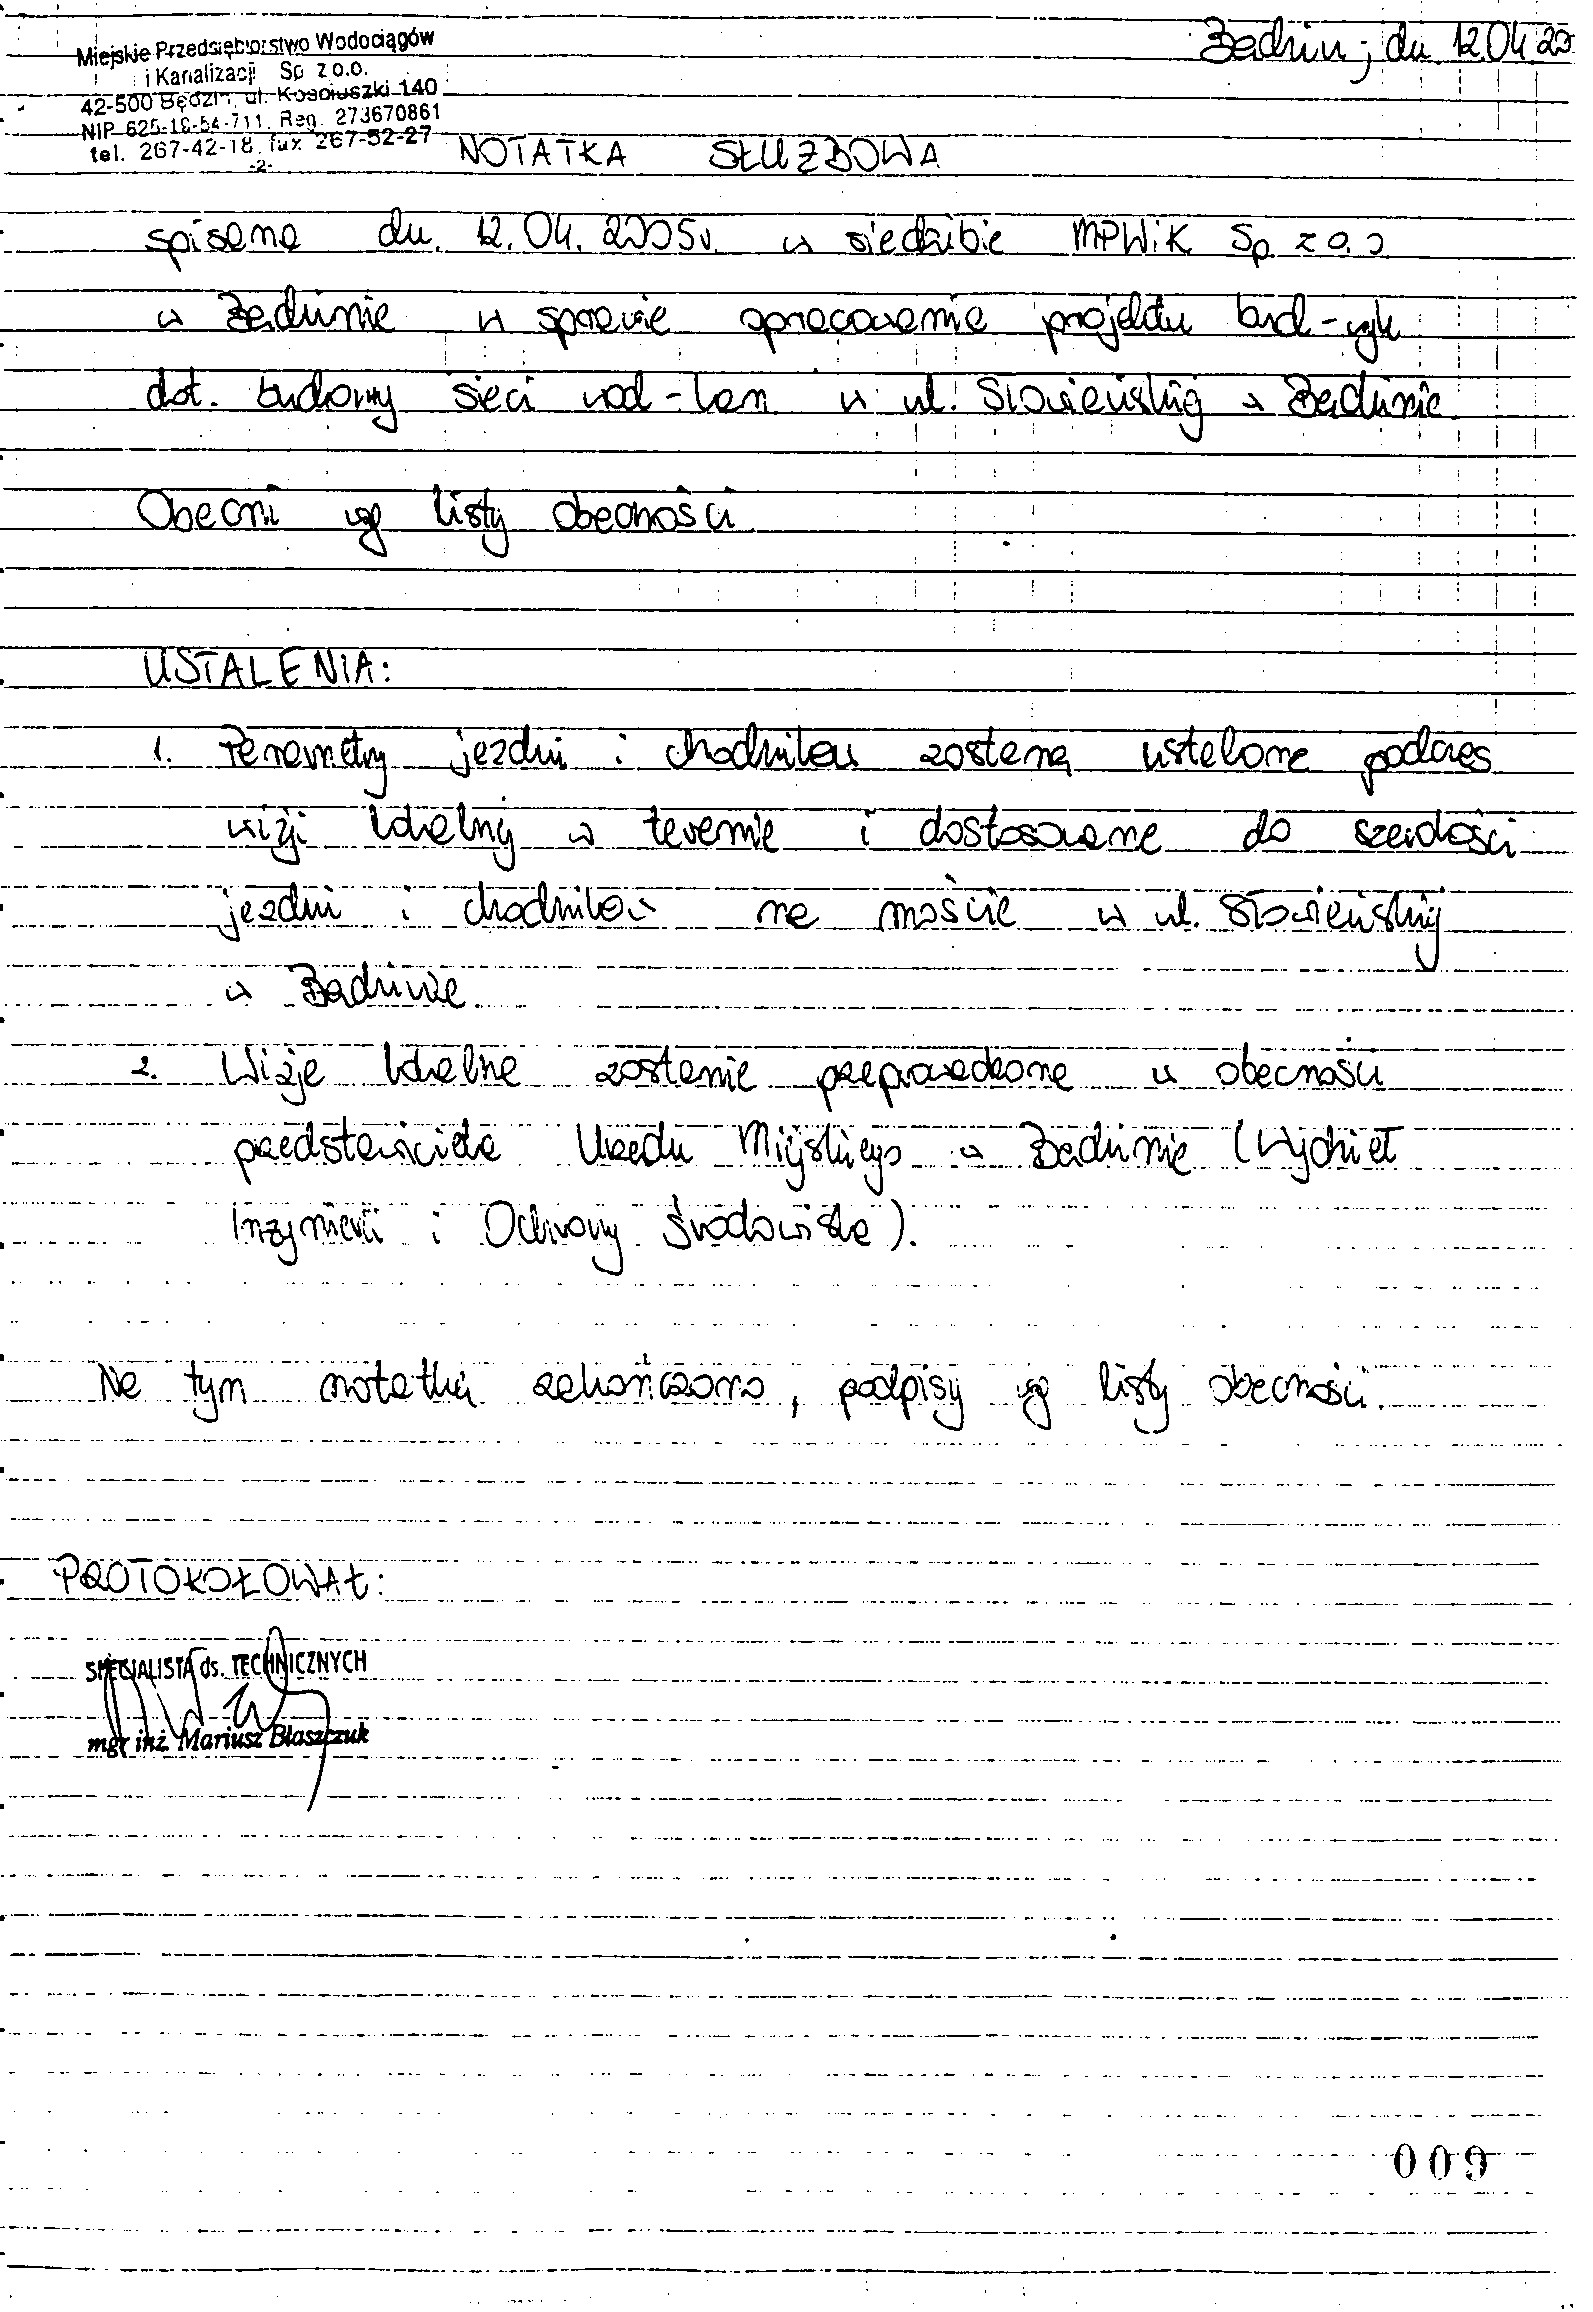 Miejskie Przedsiębiorstwo Wodociągów
i Kanalizacji Sp. z o.o.
42-500 Będzin, ul. Kościuszki 140
NIP 625-18-54-711, Reg. 273670861
tel. 267-42-18, fax 267-52-27
-2-
Będzin, dn. 12.04.20
NOTATKA SŁUŻBOWA
spisana dn. 12.04.2005r. w siedzibie MPWiK Sp. z o.o
w Będzinie w sprawie opracowania projektu bud-wyk
dot. budowy sieci wod-kan w ul. Słowieńskiej w Będzinie
Obecni wg listy obecności
USTALENIA:
1. Parametry jezdni i chodników zostaną ustalone podczas
wizji lokalnej w terenie i dostosowane do szerokości
jezdni i chodników na moście w ul. Słowieńskiej
w Będzinie.
2. Wizja lokalna zostanie przeprowadzona w obecności
przedstawiciela Urzędu Miejskiego w Będzinie (Wydział
Inżynierii i Ochrony Środowiska).
Na tym notatkę zakończono, podpisy wg listy obecności.
PROTOKOŁOWAŁ:
SPECJALISTA ds. TECHNICZNYCH
mgr inż. Mariusz Błaszczuk
009